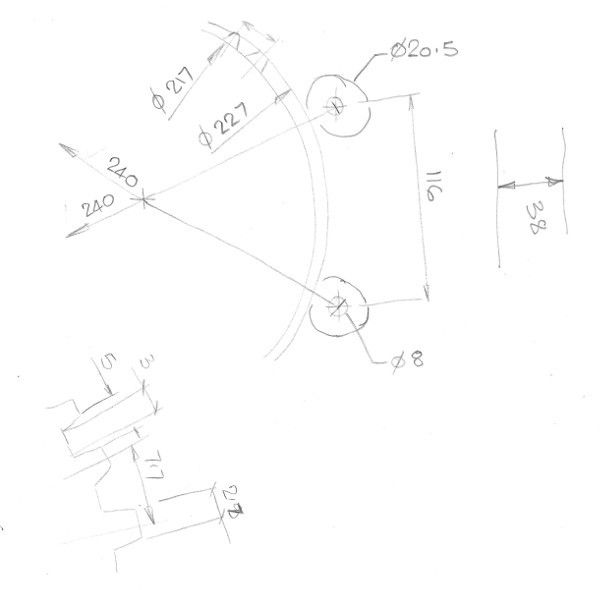 Ø20.5
Ø 217
Ø 227
240
240
116
38
Ø8
5
3
7.7